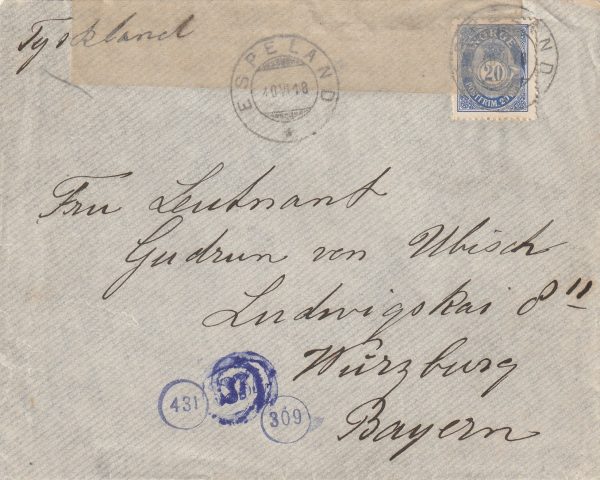 Tyskland
ESPELAND
10 VI 18
NORGE
20
POSTFRIM
Fru Leutnant
Gudrun von Ubisch
Ludwigskai 8 II
Würzburg
Bayern
431
309